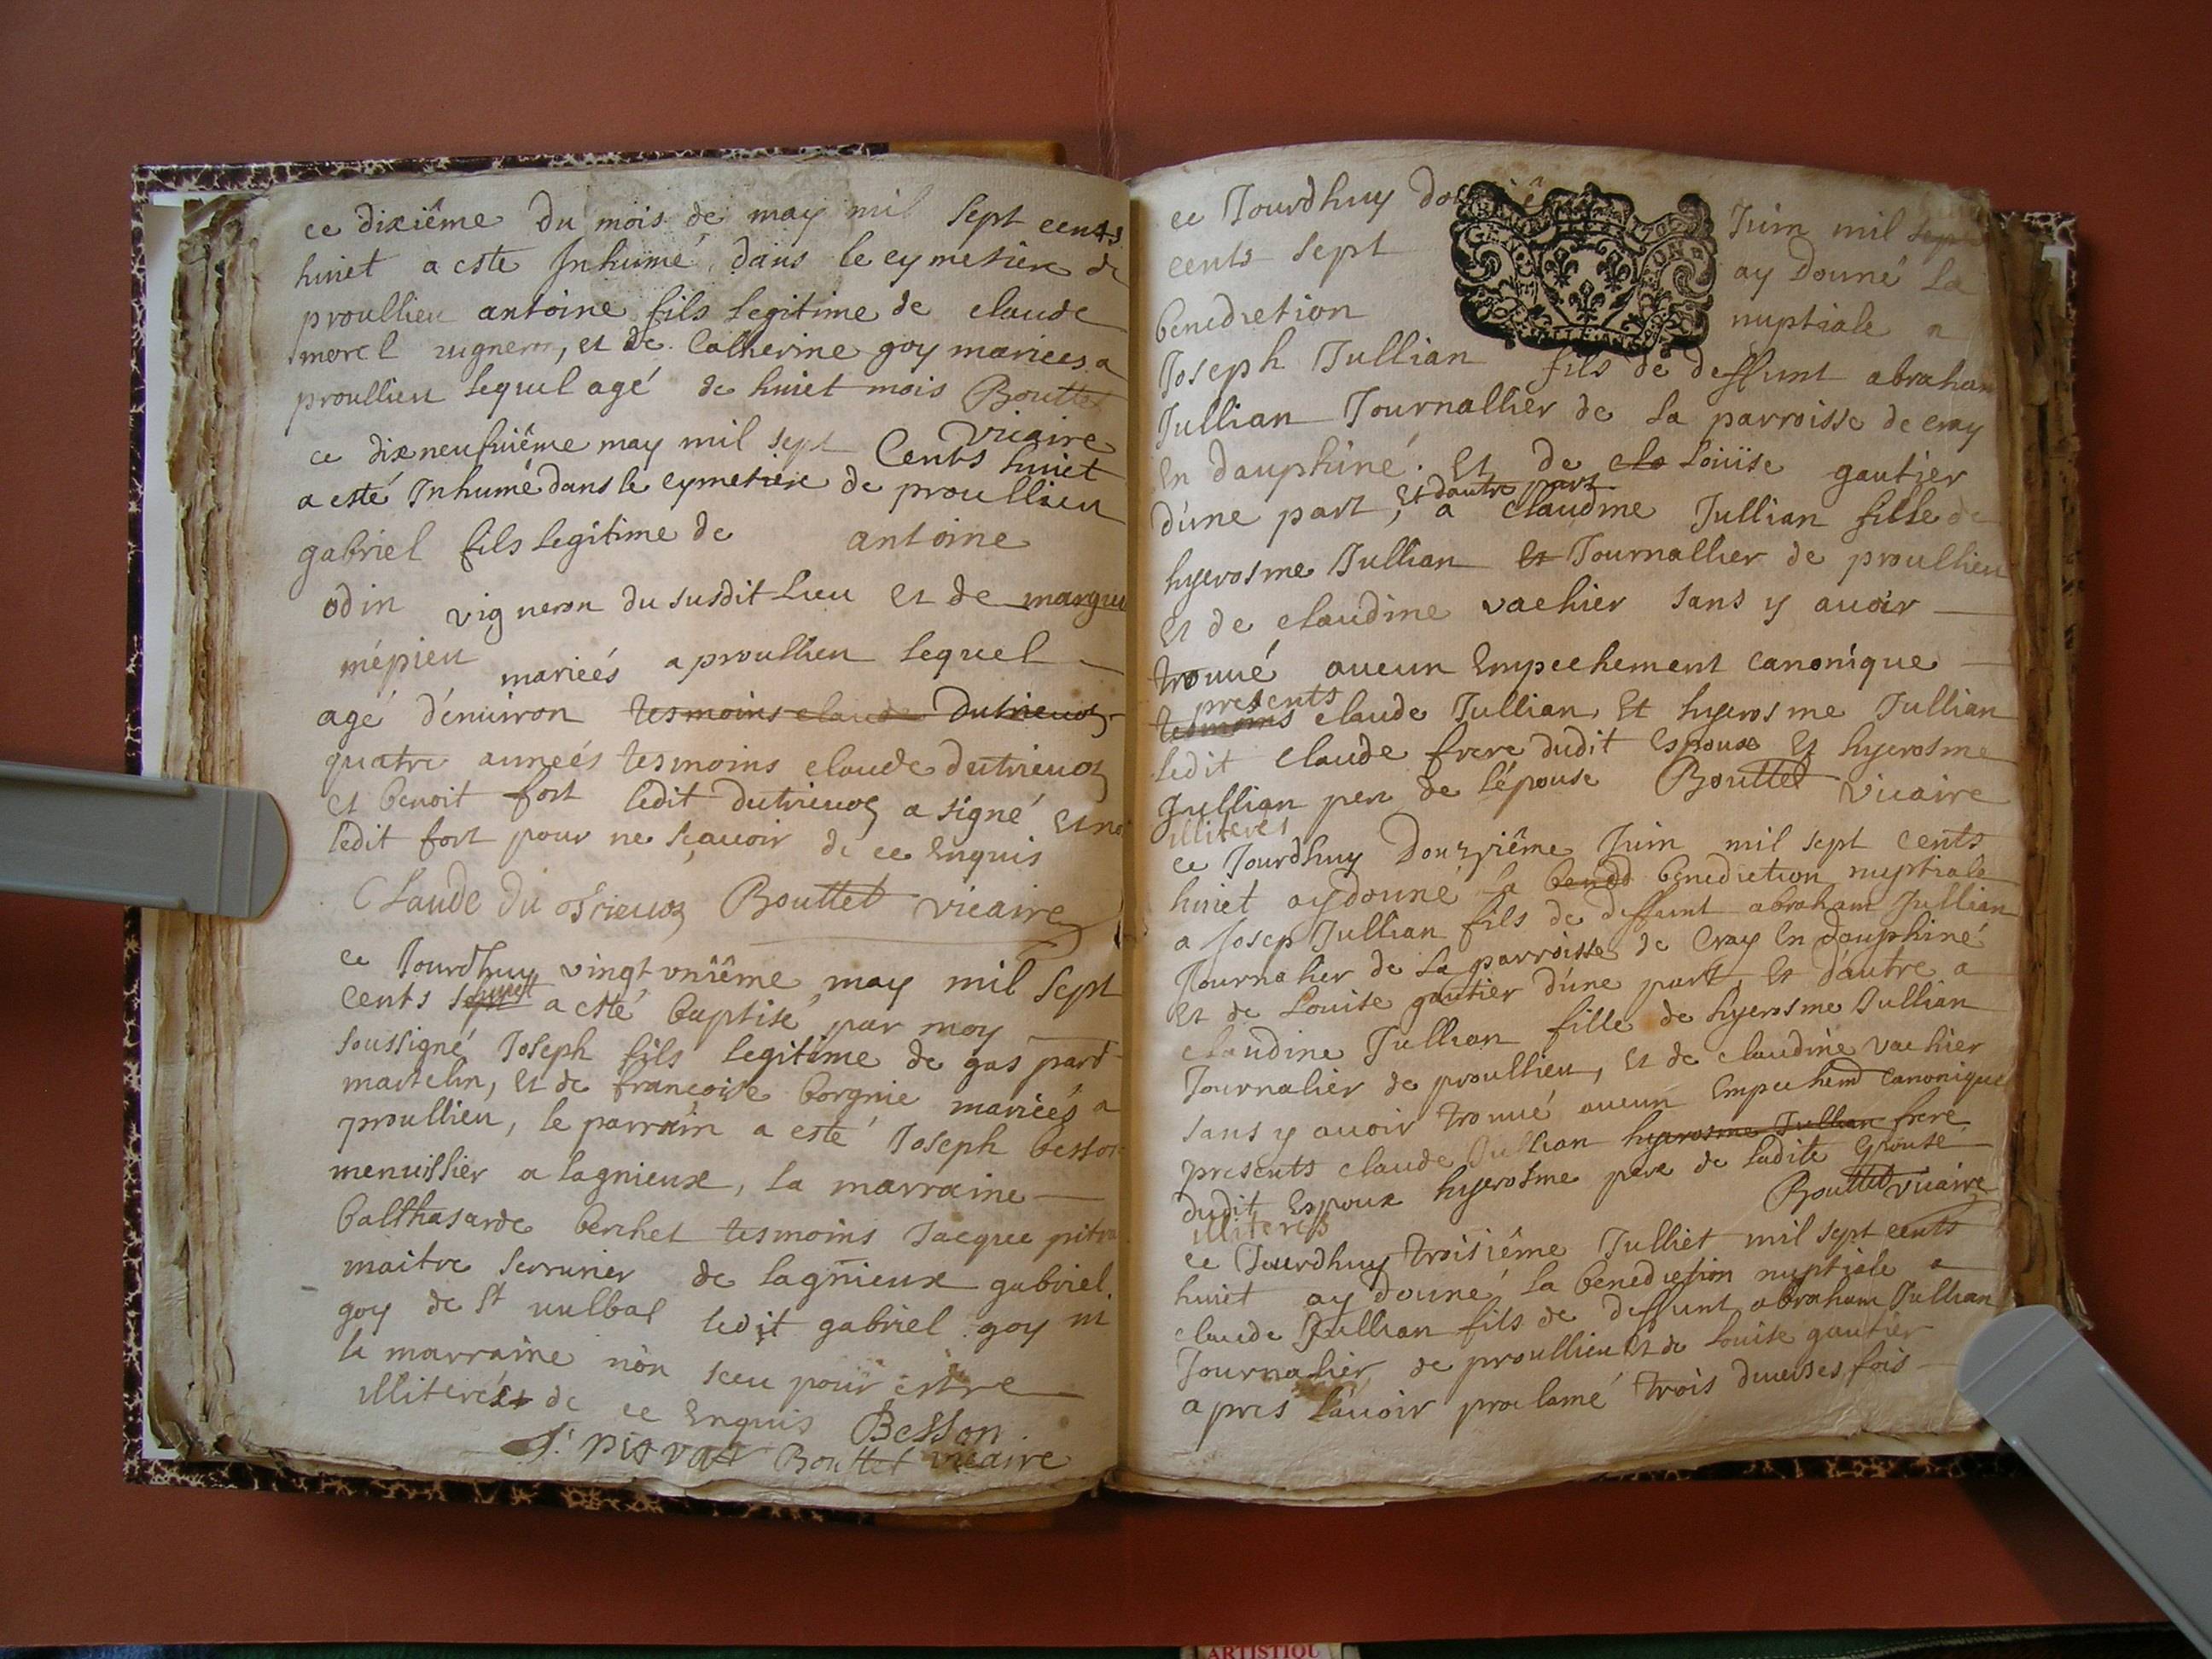 ce dixiême du mois de may mil sept cents
huict a este Inhumé dans le cymetiere de
proullieu antoine fils legitime de claude
morel vigneron, et de Catherine goy mariees a
proullieu lequel agé de huict mois Bouttet
vicaire
ce dixneufuiême may mil sept Cents huict
a esté Inhumé dans le cymetiere de proullieu
gabriel fils legitime de antoine
odin vigneron du susdit lieu et de margue
mépieu marieés a proullieu lequel
agé dénuiron tesmoins claude dutrieuoz
quatre anneés tesmoins claude dutrieuoz
et benoit fort ledit dutrieuoz a signé et no
ledit fort pour ne sçauoir de ce enquis
Claude du Trieuoz Bouttet vicaire
ce Jourdhuy vingt vniême may mil sept
cents sept huict a esté baptisé par moy
soussigné Joseph fils legitime de gaspard
martelin, et de françoise borgnie mariées a
proullieu, le parrain a esté Joseph besson
menuissier a lagnieux, la marraine
balthasarde berchet tesmoins Jacque pitra
maitre serrurier de lagnieux gabriel
goy de st uulbas ledit gabriel goy ni
la marraine nòn sceu pour estre
illiterés de ce enquis Besson
J. pitrat Bouttet vicaire
ce Jourdhuy Juin mil sept
cents sept ay donné la
benediction nuptiale a
Joseph Jullian fils de deffunt abraham
Jullian Journallier de la parroisse de cray
en dauphiné. et de clo loüise gautier
dúne part, et dautre part a claudine Jullian fille de
hyerosme Jullian et Journallier de proullieu
et de claudine vachier sans y auoir
trouué aucun empechement canonique
tesmoins presents claude Jullian, et hyerosme Jullian
ledit claude frere dudit espoux et hyerosme
Jullian pere de lépouse Bouttet vicaire
illiterés
ce Jourdhuy douziême Juin mil sept cents
huict ay donné la bened benediction nuptiale
a Josep Jullian fils de deffunt abraham Jullian
Journalier de la parroisse de Cray en dauphiné
et de Louise gautier dúne part, et dáutre a
claudine Jullian fille de hyerosme Jullian
Journalier de proullieu, et de claudine vachier
sans y auoir trouué aucun empechemt canonique
presents claude Jullian hyerosme Jullian frere
dudit espoux hyerosme pere de ladite epouse
illiterés Bouttet vicaire
ce Jourdhuy troisiême Julliet mil sept cents
huict ay donné la benediction nuptiale a
claude Jullian fils de deffunt abraham Jullian
Journalier de proullieu et de louise gautier
apres láuoir proclamé trois diuerses fois
ARTISTIQU